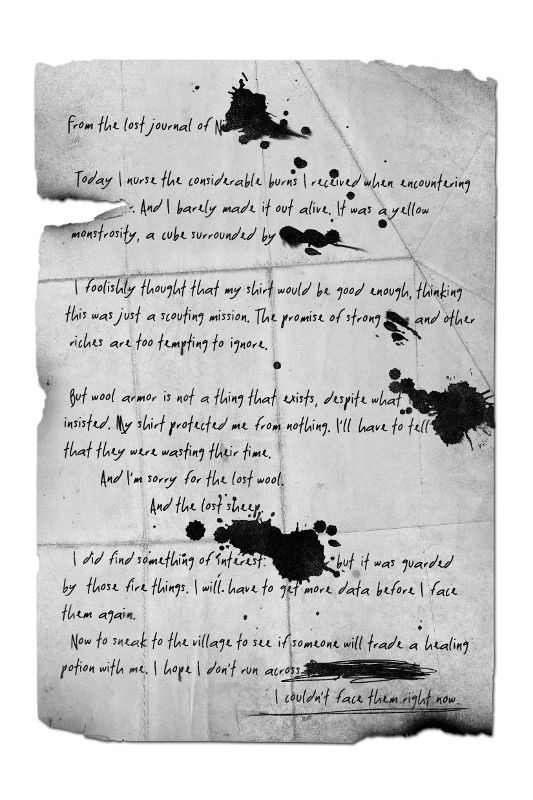 From the lost journal of N
Today I nurse the considerable burns I received when encountering
. And I barely made it out alive. It was a yellow
monstrosity, a cube surrounded by
I foolishly thought that my shirt would be good enough, thinking
this was just a scouting mission. The promise of strong and other
riches are too tempting to ignore.
But wool armor is not a thing that exists, despite what
insisted. My shirt protected me from nothing. I'll have to tell
that they were wasting their time.
And I'm sorry for the lost wool.
And the lost sheep.
I did find something of interest: but it was guarded
by those fire things. I will have to get more data before I face
them again.
Now to sneak to the village to see if someone will trade a healing
potion with me. I hope I don't run across
I couldn't face them right now.